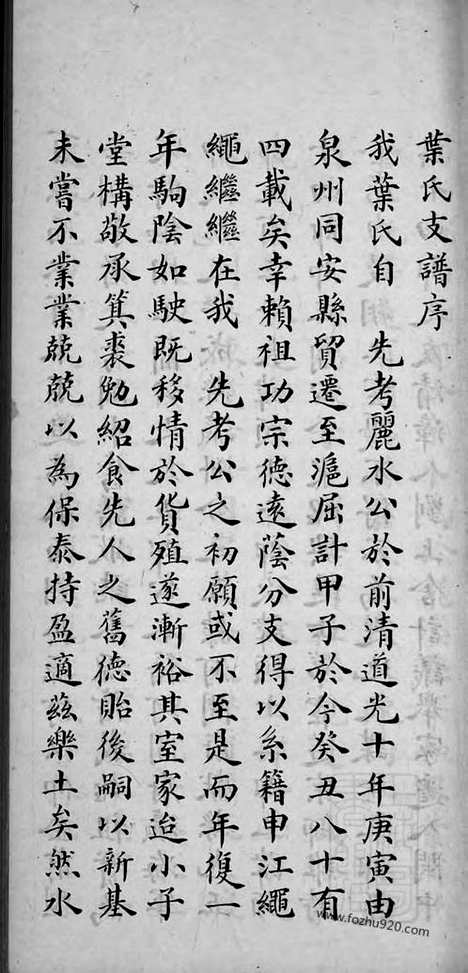 葉氏支譜序
我葉氏自　先考麗水公於前清道光十年庚寅由
泉州同安縣貿遷至滬屈計甲子於今癸丑八十有
四載矣幸賴祖功宗德遠蔭分支得以系籍申江繩
繩繼繼在我　先考公之初願或不至是而年復一
年駒陰如駛既移情於貨殖遂漸裕其室家迨小子
堂構敬承箕裘勉紹食先人之舊德貽後嗣以新基
未嘗不業業兢兢以為保泰持盈適茲樂土矣然水
www.fozhu920.com